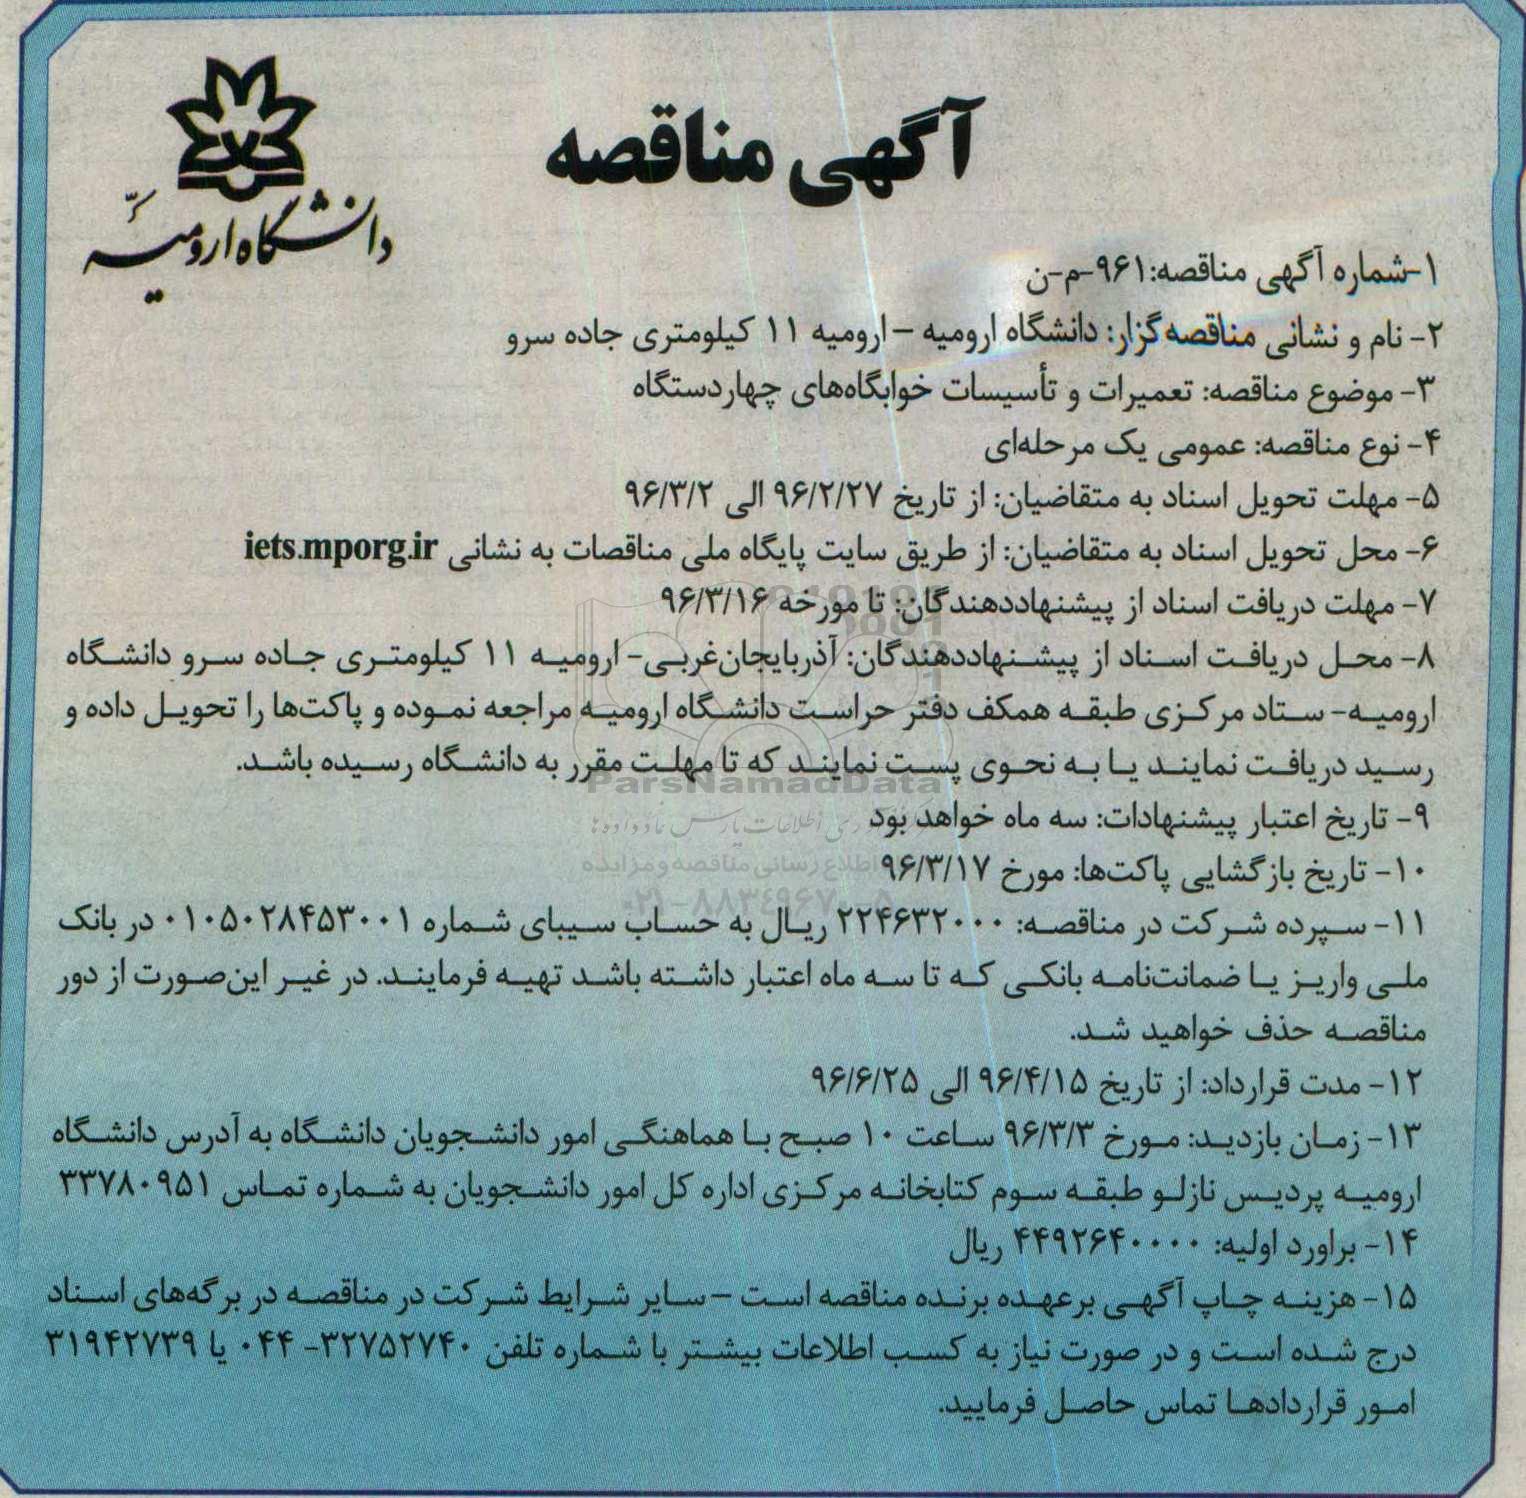 آگهی مناقصه
دانشگاه ارومیه
۱-شماره آگهی مناقصه:۹۶۱-م-ن
۲- نام و نشانی مناقصه‌گزار: دانشگاه ارومیه – ارومیه ۱۱ کیلومتری جاده سرو
۳- موضوع مناقصه: تعمیرات و تأسیسات خوابگاه‌های چهاردستگاه
۴- نوع مناقصه: عمومی یک مرحله‌ای
۵- مهلت تحویل اسناد به متقاضیان: از تاریخ ۹۶/۲/۲۷ الی ۹۶/۳/۲
۶- محل تحویل اسناد به متقاضیان: از طریق سایت پایگاه ملی مناقصات به نشانی iets.mporg.ir
۷- مهلت دریافت اسناد از پیشنهاددهندگان: تا مورخه ۹۶/۳/۱۶
۸- محل دریافت اسناد از پیشنهاددهندگان: آذربایجان‌غربی- ارومیه ۱۱ کیلومتری جاده سرو دانشگاه
ارومیه- ستاد مرکزی طبقه همکف دفتر حراست دانشگاه ارومیه مراجعه نموده و پاکت‌ها را تحویل داده و
رسید دریافت نمایند یا به نحوی پست نمایند که تا مهلت مقرر به دانشگاه رسیده باشد.
ParsNamadData
۹- تاریخ اعتبار پیشنهادات: سه ماه خواهد بود
۱۰- تاریخ بازگشایی پاکت‌ها: مورخ ۹۶/۳/۱۷
اطلاع رسانی مناقصه و مزایده
۱۱- سپرده شرکت در مناقصه: ۲۲۴۶۳۲۰۰۰ ریال به حساب سیبای شماره ۰۱۰۵۰۲۸۴۵۳۰۰۱ در بانک
ملی واریز یا ضمانت‌نامه بانکی که تا سه ماه اعتبار داشته باشد تهیه فرمایند. در غیر این‌صورت از دور
مناقصه حذف خواهید شد.
۱۲- مدت قرارداد: از تاریخ ۹۶/۴/۱۵ الی ۹۶/۶/۲۵
۱۳- زمان بازدید: مورخ ۹۶/۳/۳ ساعت ۱۰ صبح با هماهنگی امور دانشجویان دانشگاه به آدرس دانشگاه
ارومیه پردیس نازلو طبقه سوم کتابخانه مرکزی اداره کل امور دانشجویان به شماره تماس ۳۳۷۸۰۹۵۱
۱۴- براورد اولیه: ۴۴۹۲۶۴۰۰۰۰ ریال
۱۵- هزینه چاپ آگهی برعهده برنده مناقصه است – سایر شرایط شرکت در مناقصه در برگه‌های اسناد
درج شده است و در صورت نیاز به کسب اطلاعات بیشتر با شماره تلفن ۳۲۷۵۲۷۴۰- ۰۴۴ یا ۳۱۹۴۲۷۳۹
امور قراردادها تماس حاصل فرمایید.